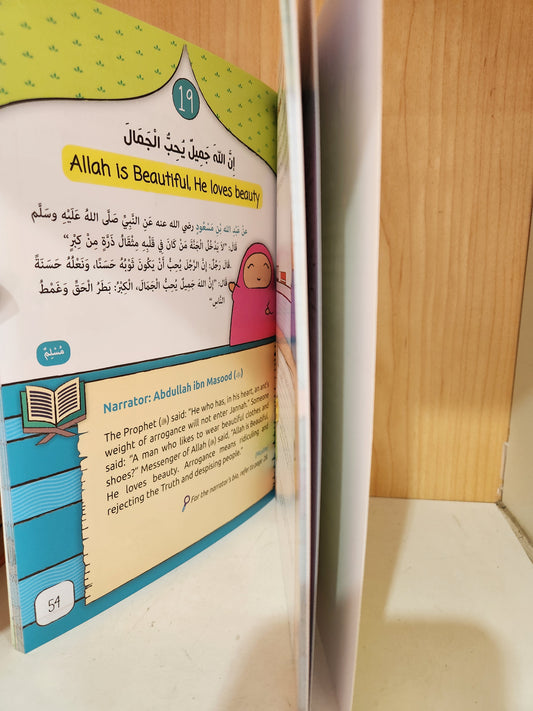 19
إِنَّ اللَّهَ جَمِيلٌ يُحِبُّ الْجَمَالَ
Allah is Beautiful, He loves beauty
عَنْ عَبْدِ اللهِ بْنِ مَسْعُودٍ رضي الله عنه عَنِ النَّبِيِّ صَلَّى اللهُ عَلَيْهِ وسَلَّم
قَالَ: "لَا يَدْخُلُ الْجَنَّةَ مَنْ كَانَ فِي قَلْبِهِ مِثْقَالُ ذَرَّةٍ مِنْ كِبْرٍ"
قَالَ رَجُلٌ: إِنَّ الرَّجُلَ يُحِبُّ أَنْ يَكُونَ ثَوْبُهُ حَسَنًا، وَنَعْلُهُ حَسَنَةً.
قَالَ: "إِنَّ اللهَ جَمِيلٌ يُحِبُّ الْجَمَالَ، الْكِبْرُ: بَطَرُ الْحَقِّ وَغَمْطُ
النَّاسِ"
مُسْلِمٌ
Narrator: Abdullah ibn Masood (رضي الله عنه)
The Prophet (ﷺ) said: "He who has, in his heart, an ant's
weight of arrogance will not enter Jannah." Someone
said: "A man who likes to wear beautiful clothes and
shoes?" Messenger of Allah (ﷺ) said, "Allah is Beautiful,
He loves beauty. Arrogance means ridiculing and
rejecting the Truth and despising people."
For the narrator's bio, refer to page
54